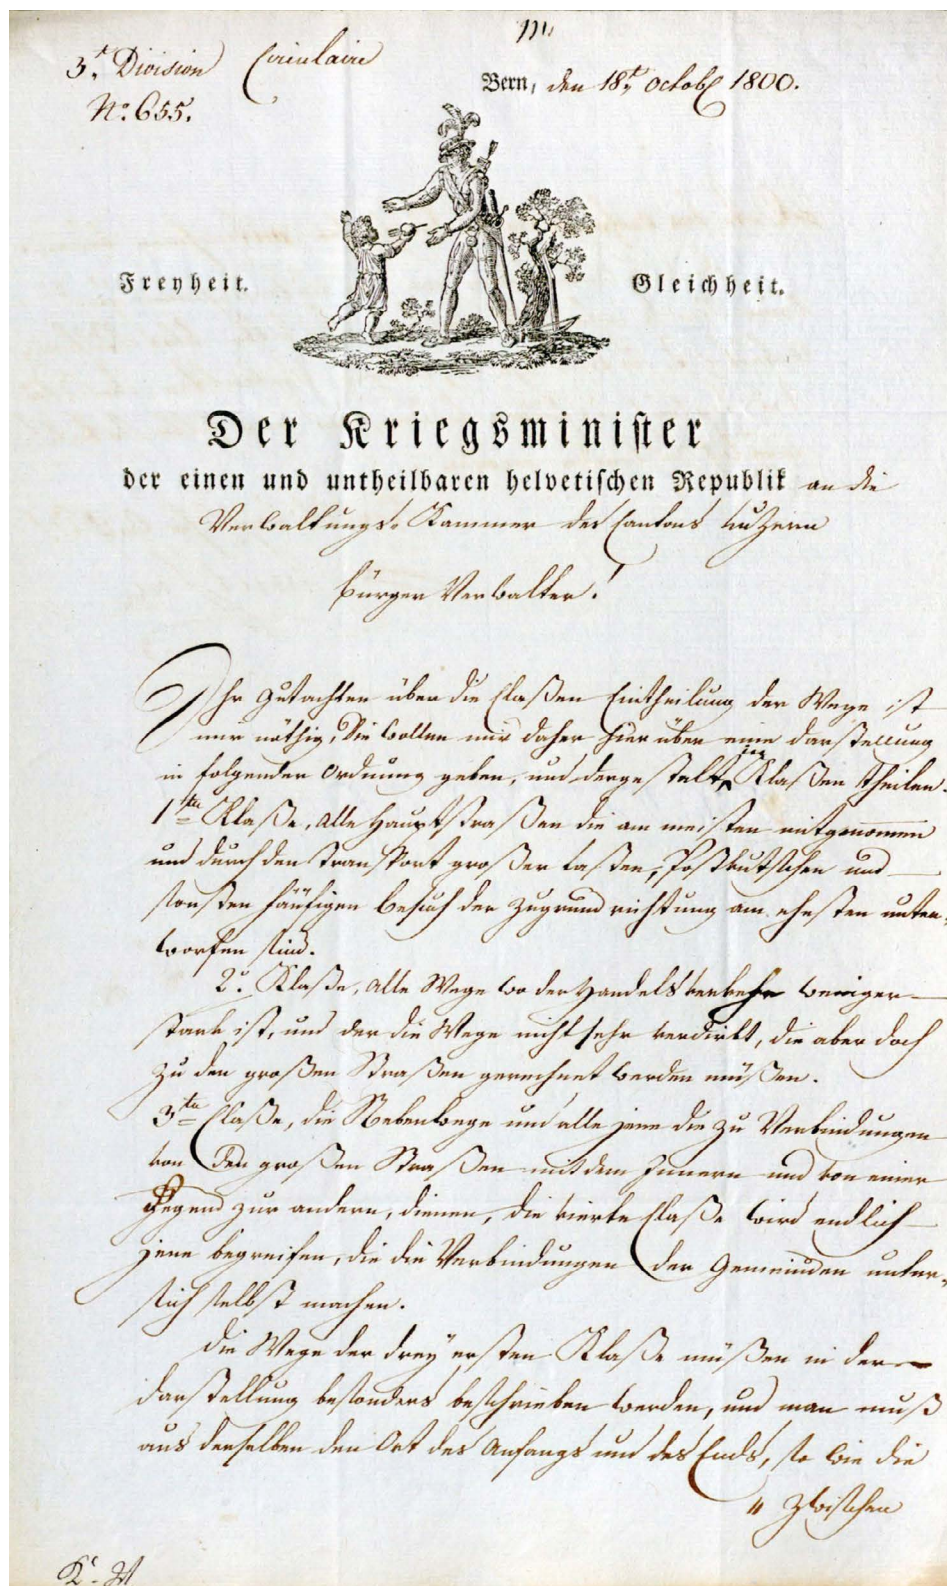 3.t Division Circulaire
No. 655.
Bern, den 18.t Octobr 1800.
Freyheit.
Gleichheit.
Der Kriegsminister
der einen und untheilbaren helvetischen Republik an die
Verwaltungs-Kammer des Cantons Luzern
Bürger Verwalter!
Ihr Gutachten über die Claßen Eintheilung der Wege ist
mir nöthig, Sie wollen mir daher hierüber eine Darstellung
in folgender Ordnung geben, und dergestalt Klaßen theilen.
1te Klaße, Alle Hauptstraßen die am meisten mitgenommen
und durch den Transport großer Lasten, Postkutschen und
sonsten häufigen Besuch der Zugrundrichtung am ehesten unter-
worfen sind.
2. Klaße, Alle Wege wo der Handelsverkehr weniger
stark ist, und der die Wege nicht sehr verdirbt, die aber doch
zu den großen Straßen gerechnet werden müßen.
3te Claße, die Nebenwege und alle jene die zu Verbindungen
von den großen Straßen mit dem Innern und von einer
Gegend zur andern, dienen, die vierte Claße wird endlich
jene begreifen, die die Verbindungen der Gemeinden unter
sich selbst machen.
Die Wege der drey ersten Klaße müßen in der
Darstellung besonders beschrieben werden, und man muß
aus derselben den Ort des Anfangs und des Ends, so wie die
" zwischen